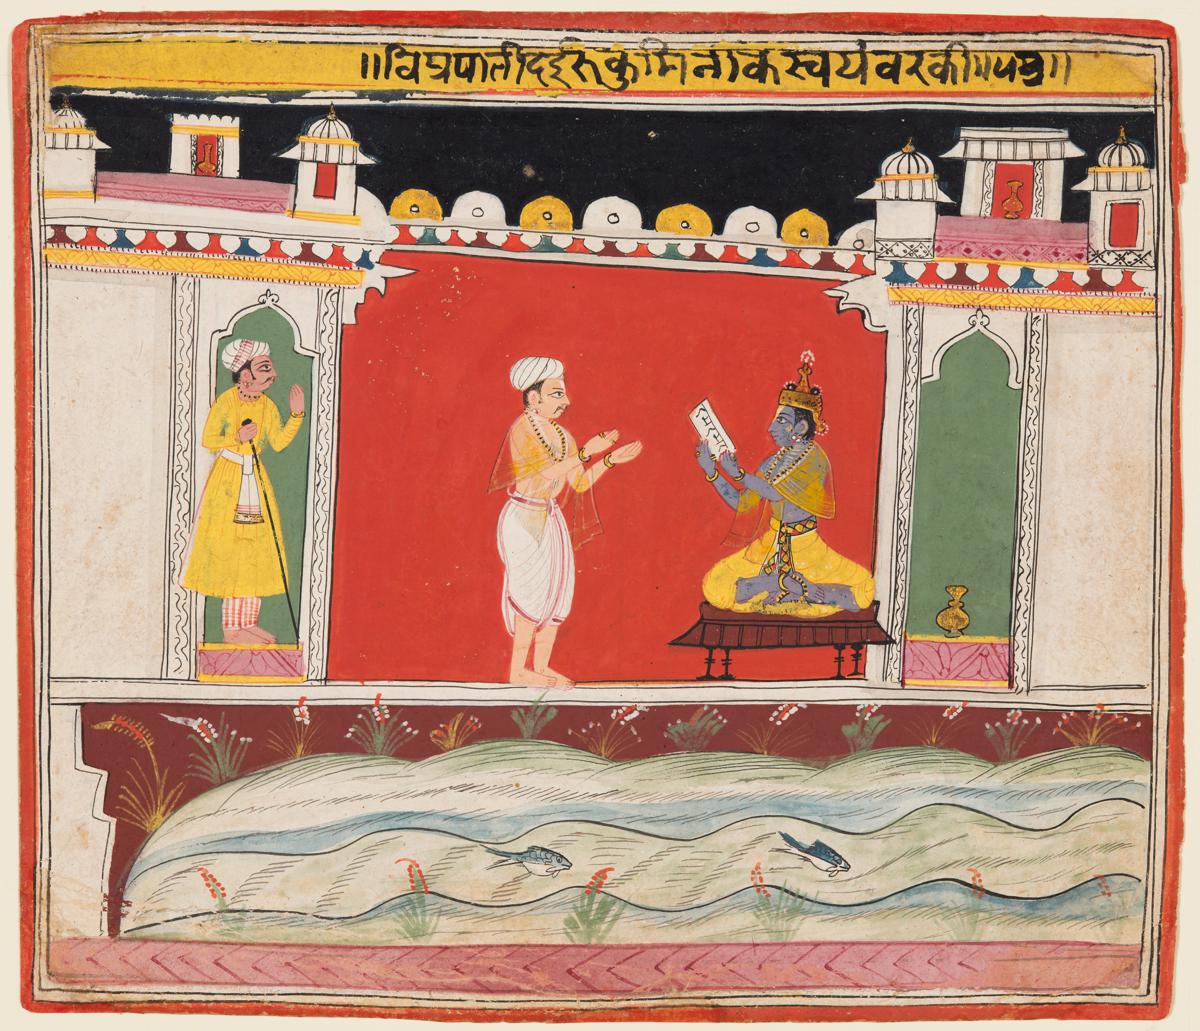 ॥विप्रपातीदईरूकुमिनीकस्वयंवरकी॥